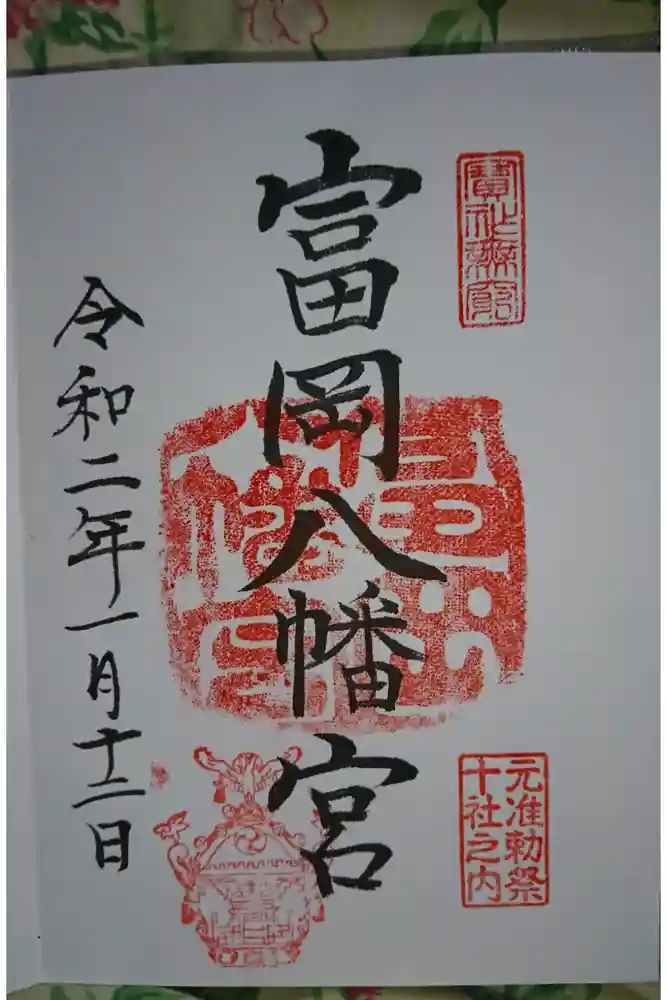 寶祚無窮
元准勅祭
十社之内
富岡八幡宮
令和二年一月十二日